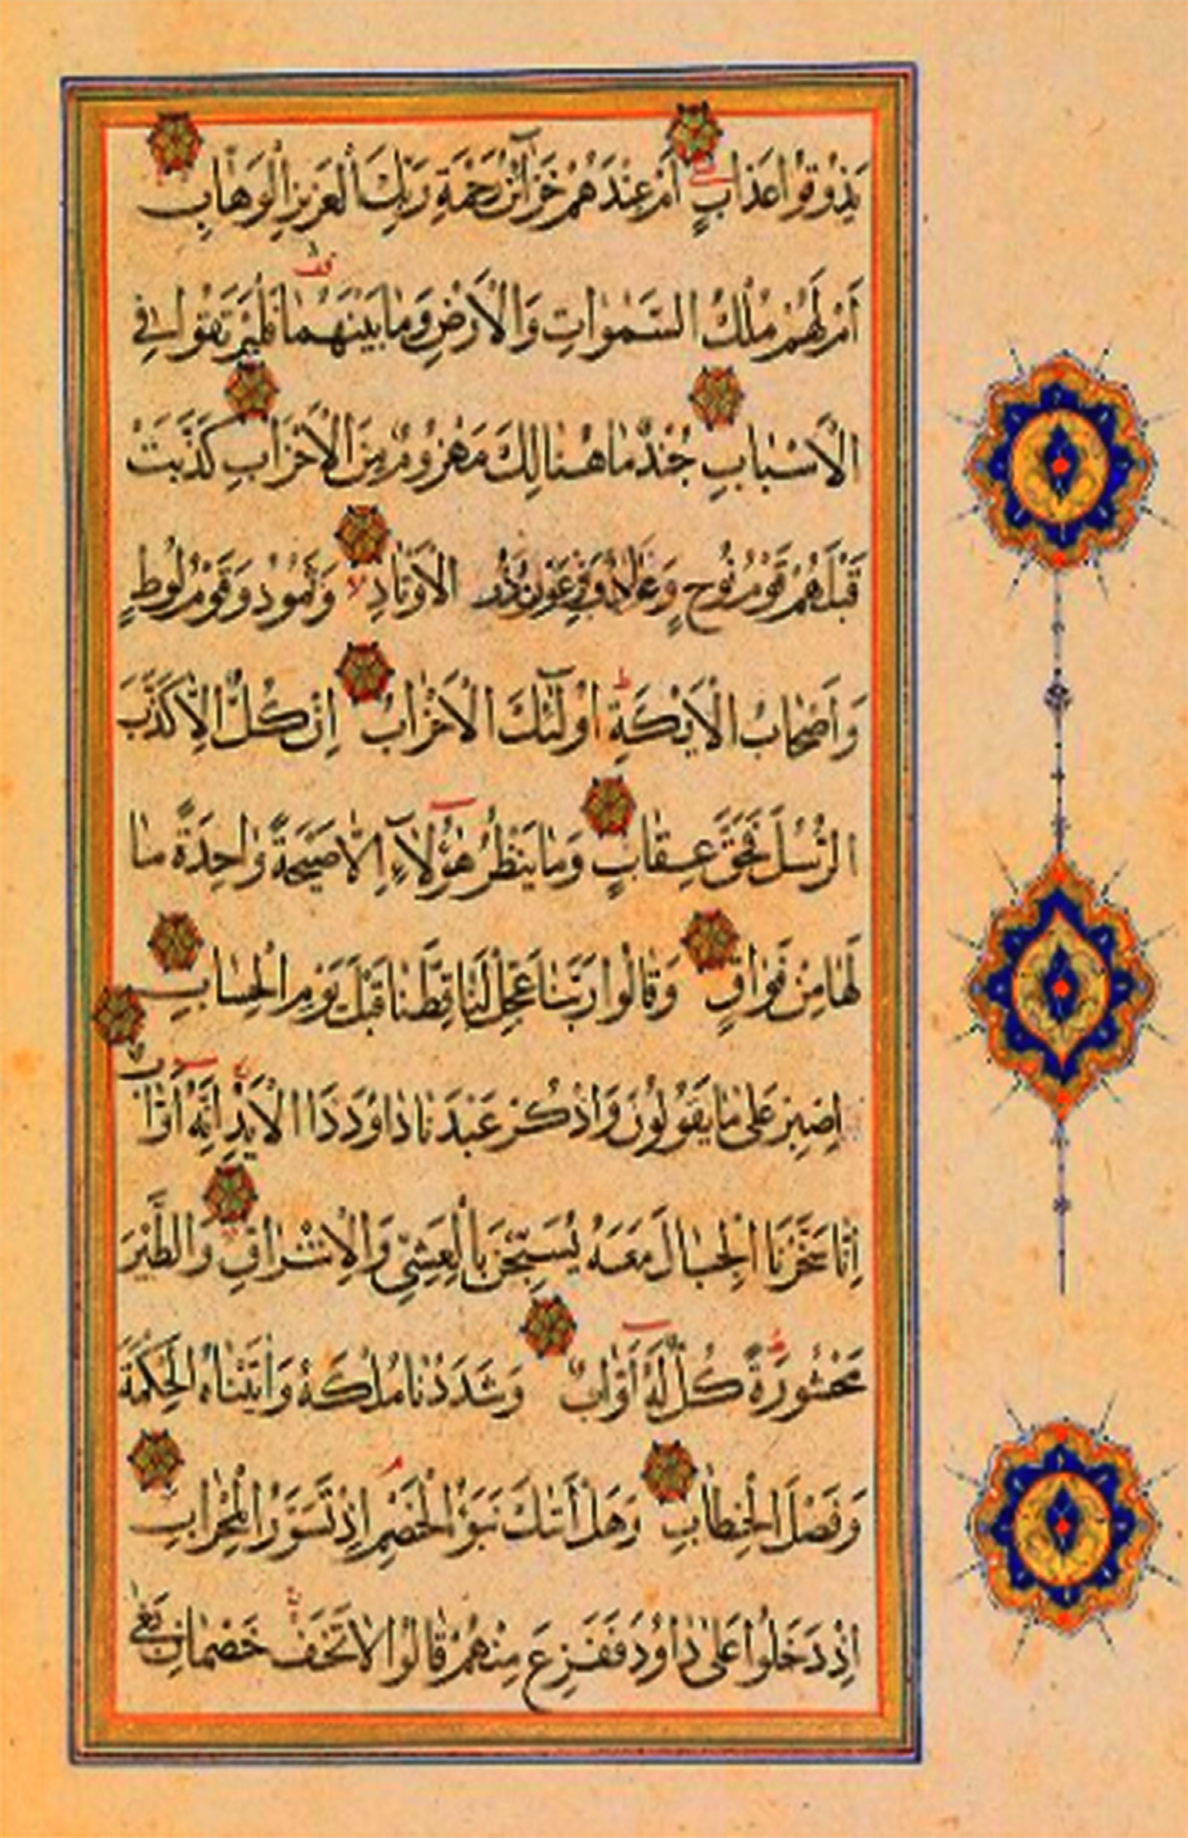 يَذُوقُوا عَذَابِ أَمْ عِنْدَهُمْ خَزَآئِنُ رَحْمَةِ رَبِّكَ الْعَزِيزِ الْوَهَّابِ
أَمْ لَهُمْ مُلْكُ السَّمٰوَاتِ وَالْأَرْضِ وَمَا بَيْنَهُمَا فَلْيَرْتَقُوا فِي
الْأَسْبَابِ جُنْدٌ مَا هُنَالِكَ مَهْزُومٌ مِنَ الْأَحْزَابِ كَذَّبَتْ
قَبْلَهُمْ قَوْمُ نُوحٍ وَعَادٌ وَفِرْعَوْنُ ذُو الْأَوْتَادِ وَثَمُودُ وَقَوْمُ لُوطٍ
وَأَصْحَابُ الْأَيْكَةِ أُولٰٓئِكَ الْأَحْزَابُ إِنْ كُلٌّ إِلَّا كَذَّبَ
الرُّسُلَ فَحَقَّ عِقَابِ وَمَا يَنْظُرُ هٰٓؤُلَآءِ إِلَّا صَيْحَةً وَاحِدَةً مَا
لَهَا مِنْ فَوَاقٍ وَقَالُوا رَبَّنَا عَجِّلْ لَنَا قِطَّنَا قَبْلَ يَوْمِ الْحِسَابِ
اِصْبِرْ عَلَى مَا يَقُولُونَ وَاذْكُرْ عَبْدَنَا دَاوُدَ ذَا الْأَيْدِ إِنَّهُ أَوَّابٌ
إِنَّا سَخَّرْنَا الْجِبَالَ مَعَهُ يُسَبِّحْنَ بِالْعَشِيِّ وَالْإِشْرَاقِ وَالطَّيْرَ
مَحْشُورَةً كُلٌّ لَهُ أَوَّابٌ وَشَدَدْنَا مُلْكَهُ وَآتَيْنَاهُ الْحِكْمَةَ
وَفَصْلَ الْخِطَابِ وَهَلْ أَتٰىكَ نَبَؤُا الْخَصْمِ إِذْ تَسَوَّرُوا الْمِحْرَابَ
إِذْ دَخَلُوا عَلَى دَاوُدَ فَفَزِعَ مِنْهُمْ قَالُوا لَا تَخَفْ خَصْمَانِ بَغَى